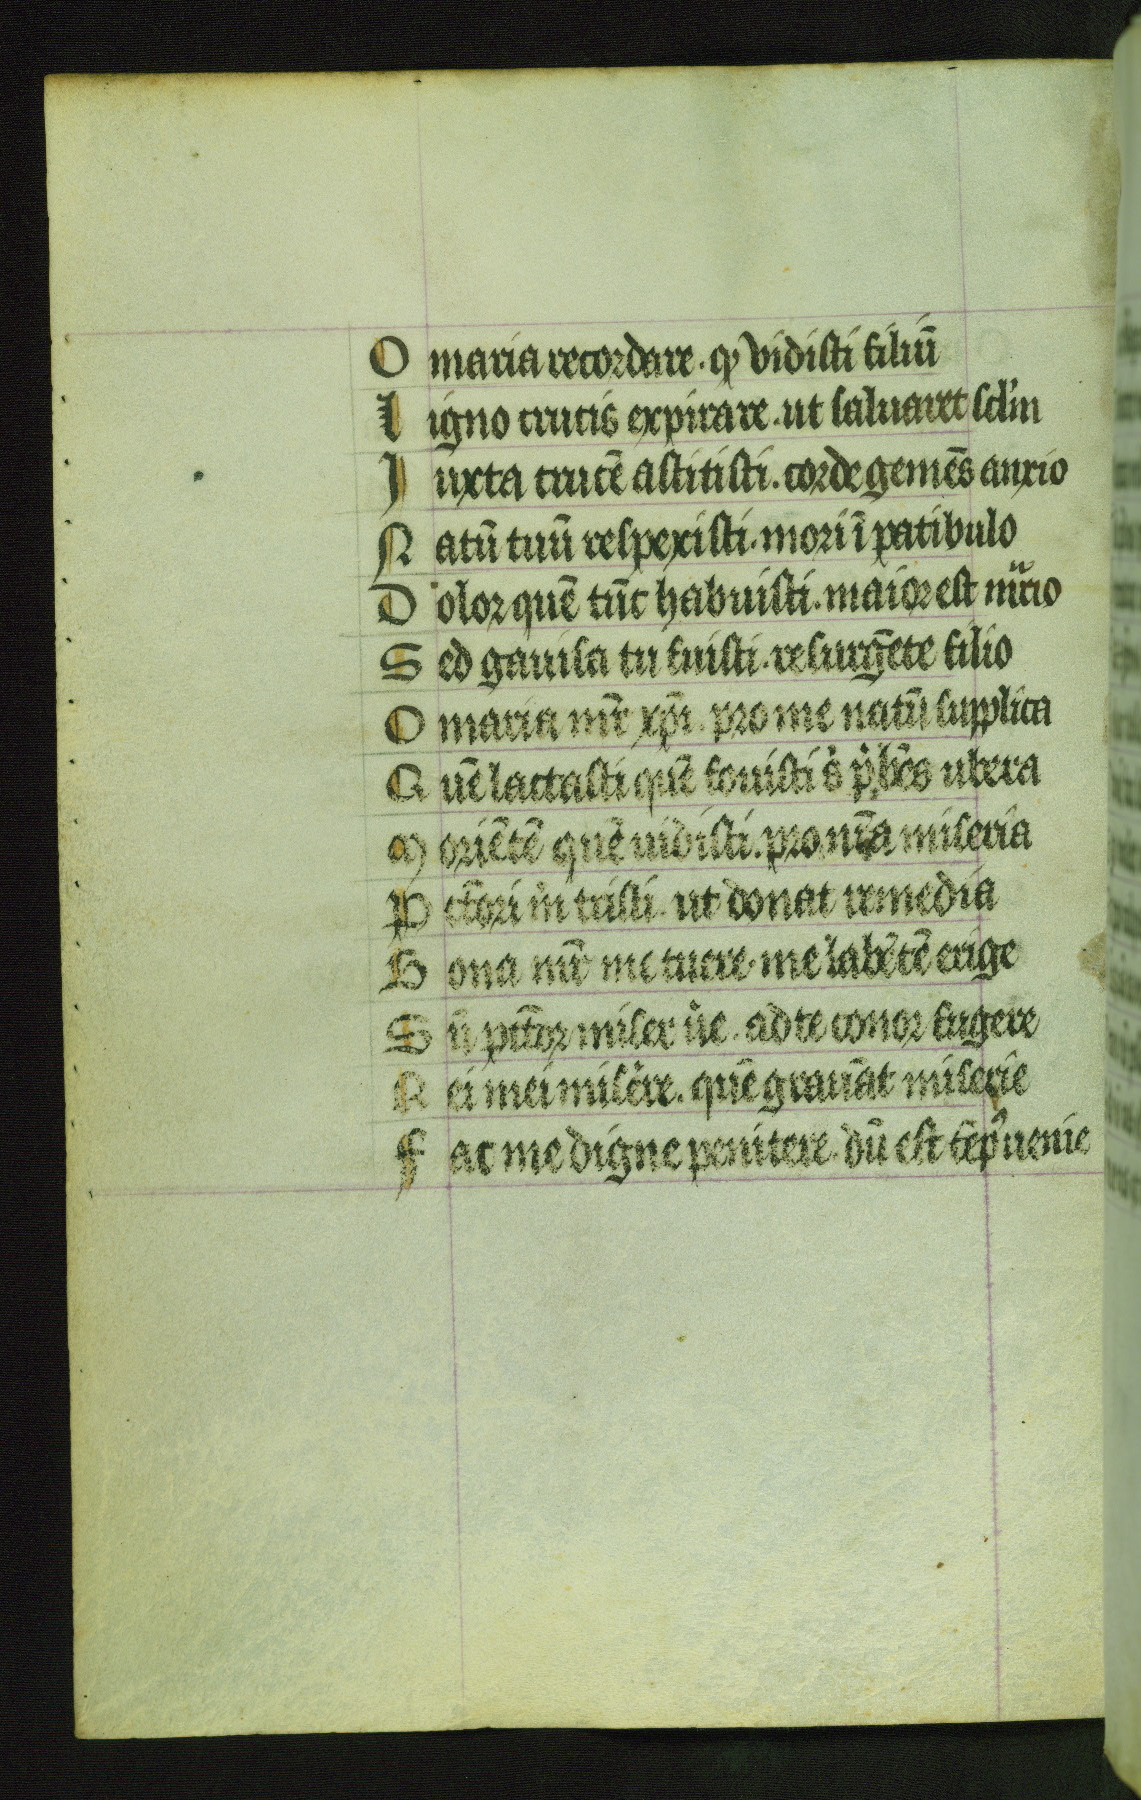 O maria recordare . qͥ vidisti filiū
L igno crucis expirare . ut saluaret scl'm
J uxta crucē astitisti . corde gemēs anxio
N atū tuū respexisti . mori ī patibulo
D olor quē tūc habuisti . maior est
S ed gauisa tu fuisti . resurgēte filio
O maria mr̄ xp̄i . pro me natū supplica
Q uē lactasti quē fouisti ubera
M oriētē quē uidisti . pro nr̄a miseria
P cc̄tori tristi . ut donat remedia
B ona mr̄ me tuere . me labētē erige
S ū pcc̄tor miser ue . ad te conor fugere
R ei mei misēre . quē grauāt miserie
F ac me digne penitere . dū est tēp' uenie